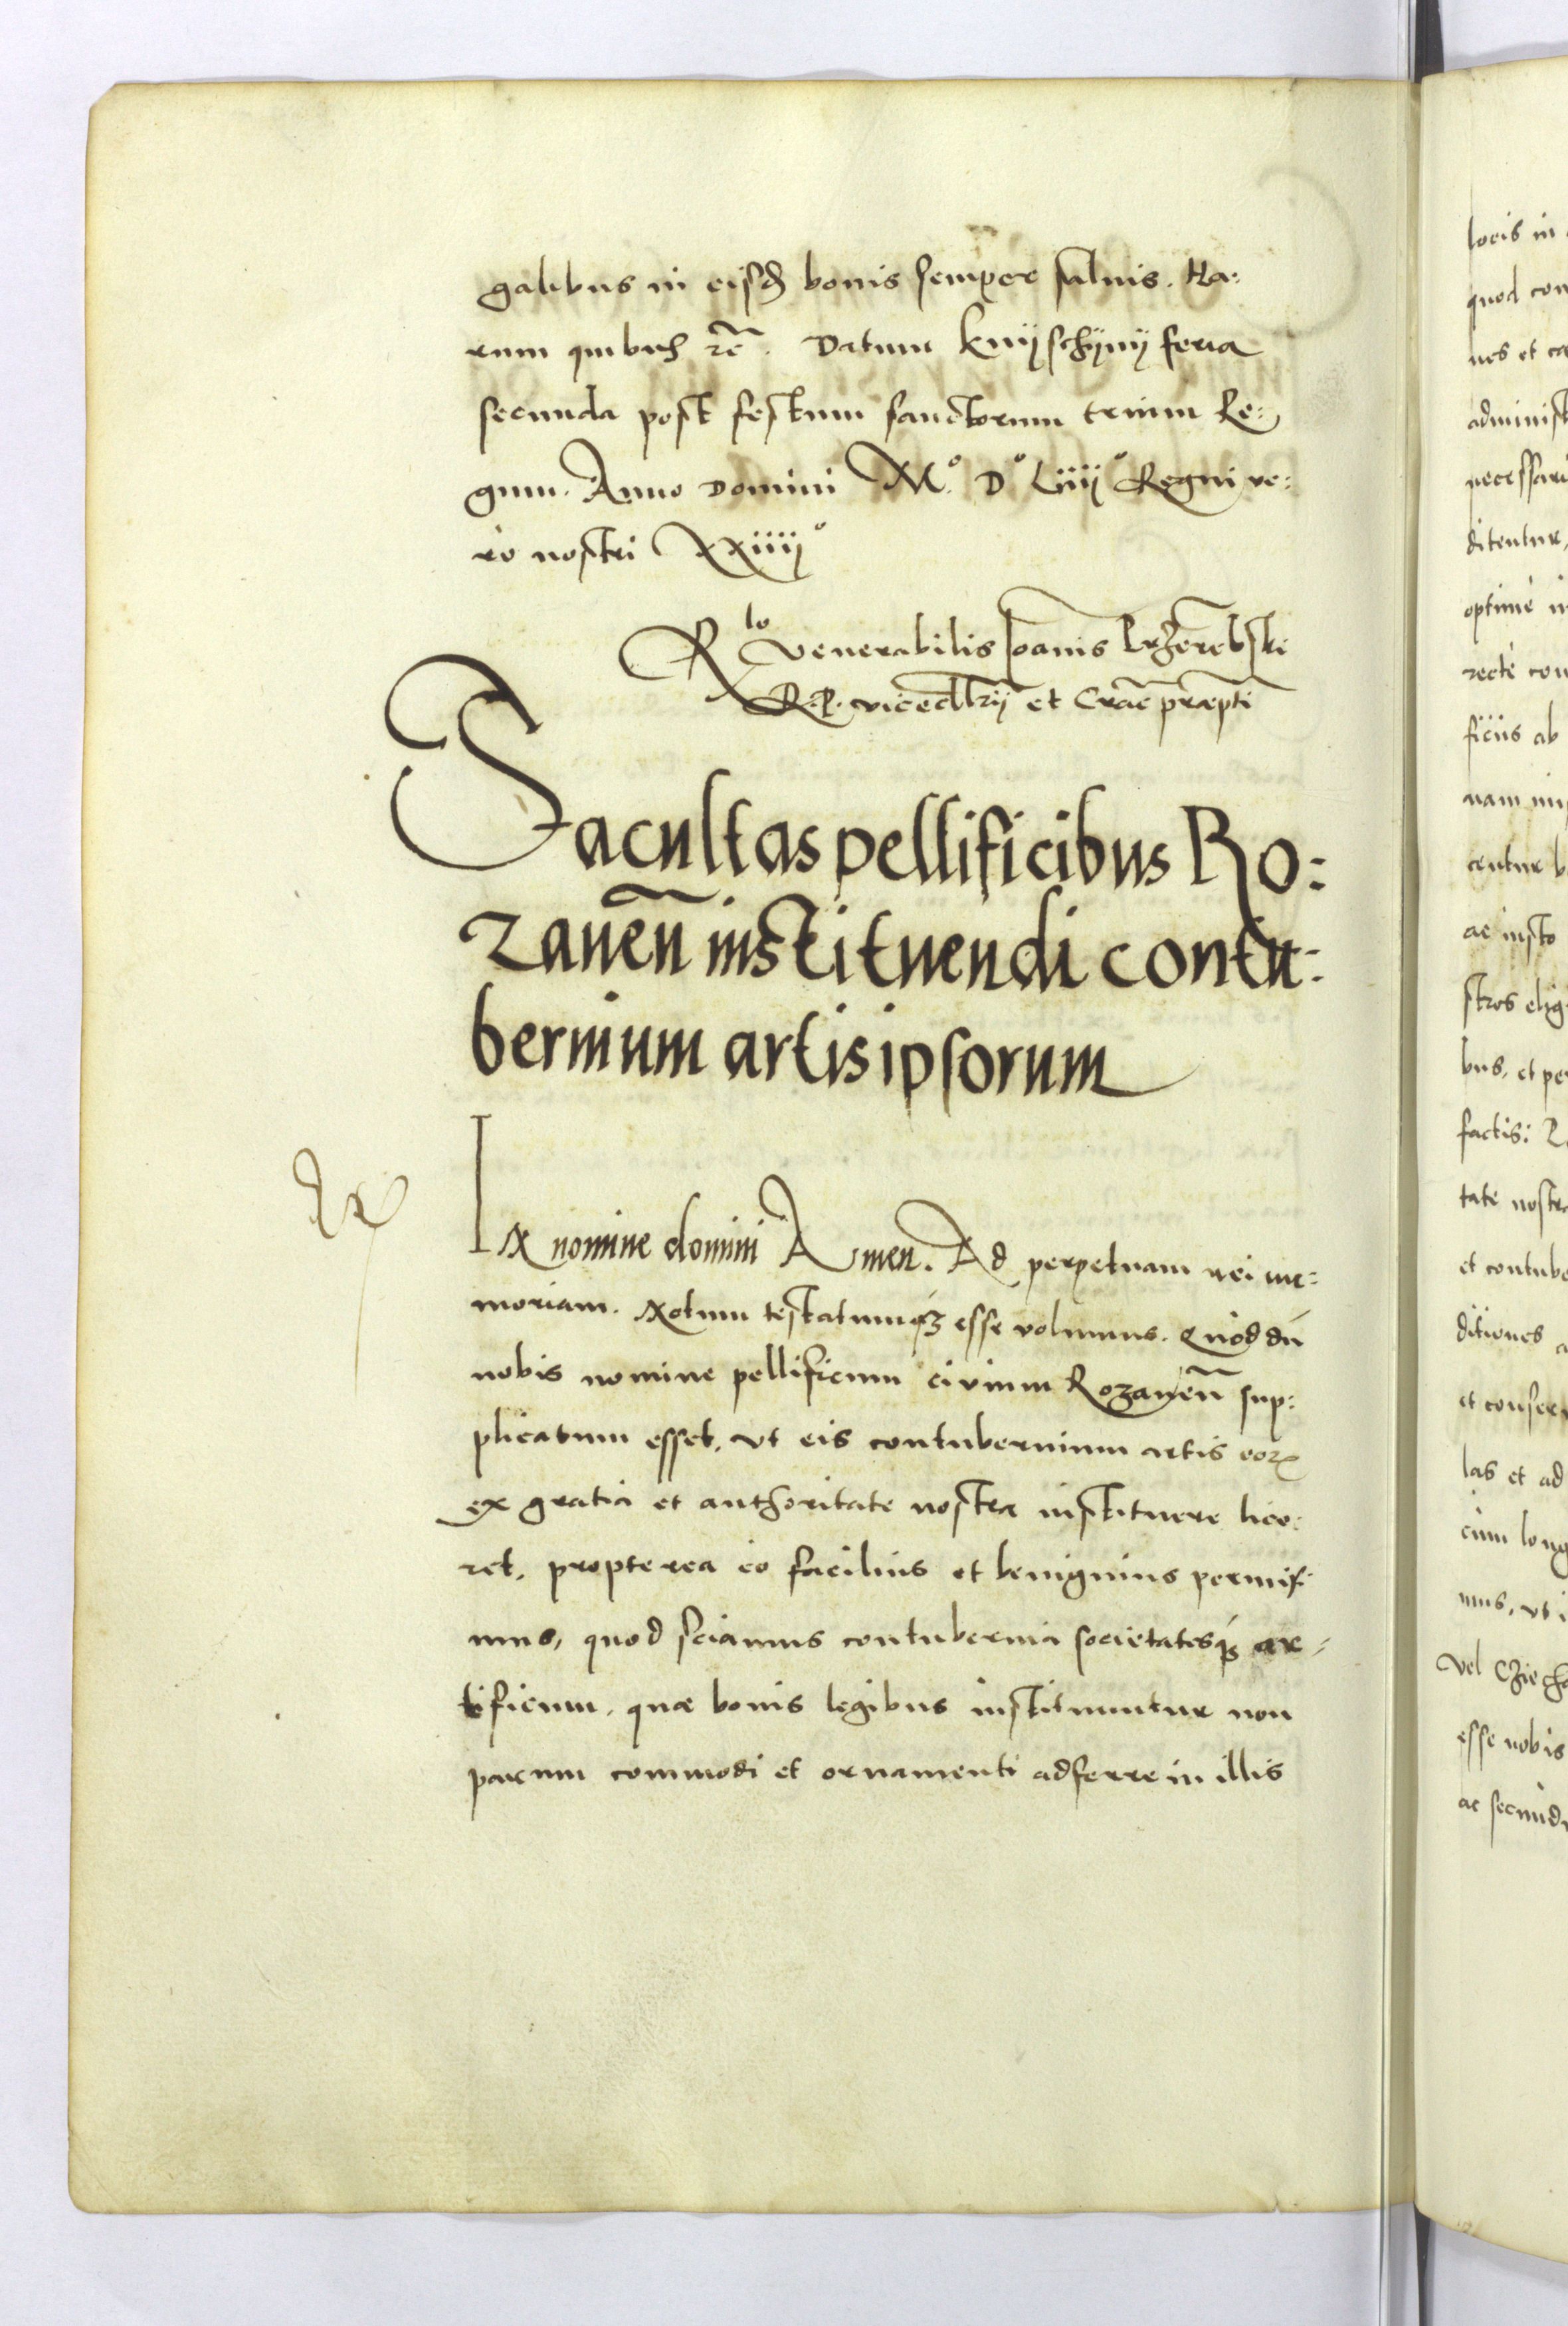 galibus in eisđ bonis semper saluis. Ha:
rum quibus rē. Datum Knijschijnij feria
secunda post festum sanctorum trium Re:
gum. Anno Domini M.º Dº Liiijº Regni ve:
ro nostri XXiiijº
Rlo venerabilis Joanis Przerēbski
R. P. vicecīlrij et Crac̄ præptī
Facultas pellificibus Ro:
zaneñ instituendi contu:
bernium artis ipsorum
IN nomine domini Amen. Ad perpetuam rei me:
moriam. Notum testatumqȝ esse volumus. Quod dū
nobis nomine pellificum civium Rozaneñ sup:
plicatum esset, vt eis contubernium artis eoꝝ
ex gratia et authoritate nostra instituere lice:
ret, propterea eo facilius et benignius permisi
mus, quod sciamus contubernia societatesqȝ ar:
tificum, quæ bonis legibus instituuntur non
parum commodi et ornamenti adferre in illis
locis in
quod con
nes et ca
administ
necessari
ditentur,
optime in
recte con
ficiis ab
nam
centur b
ac iusto
stros elig
bus, et per
factis:
tate nostra
et contube
ditiones
et conser
las et ad
cum long
mus, vt i
vel Czech
esse nobis
ac secund